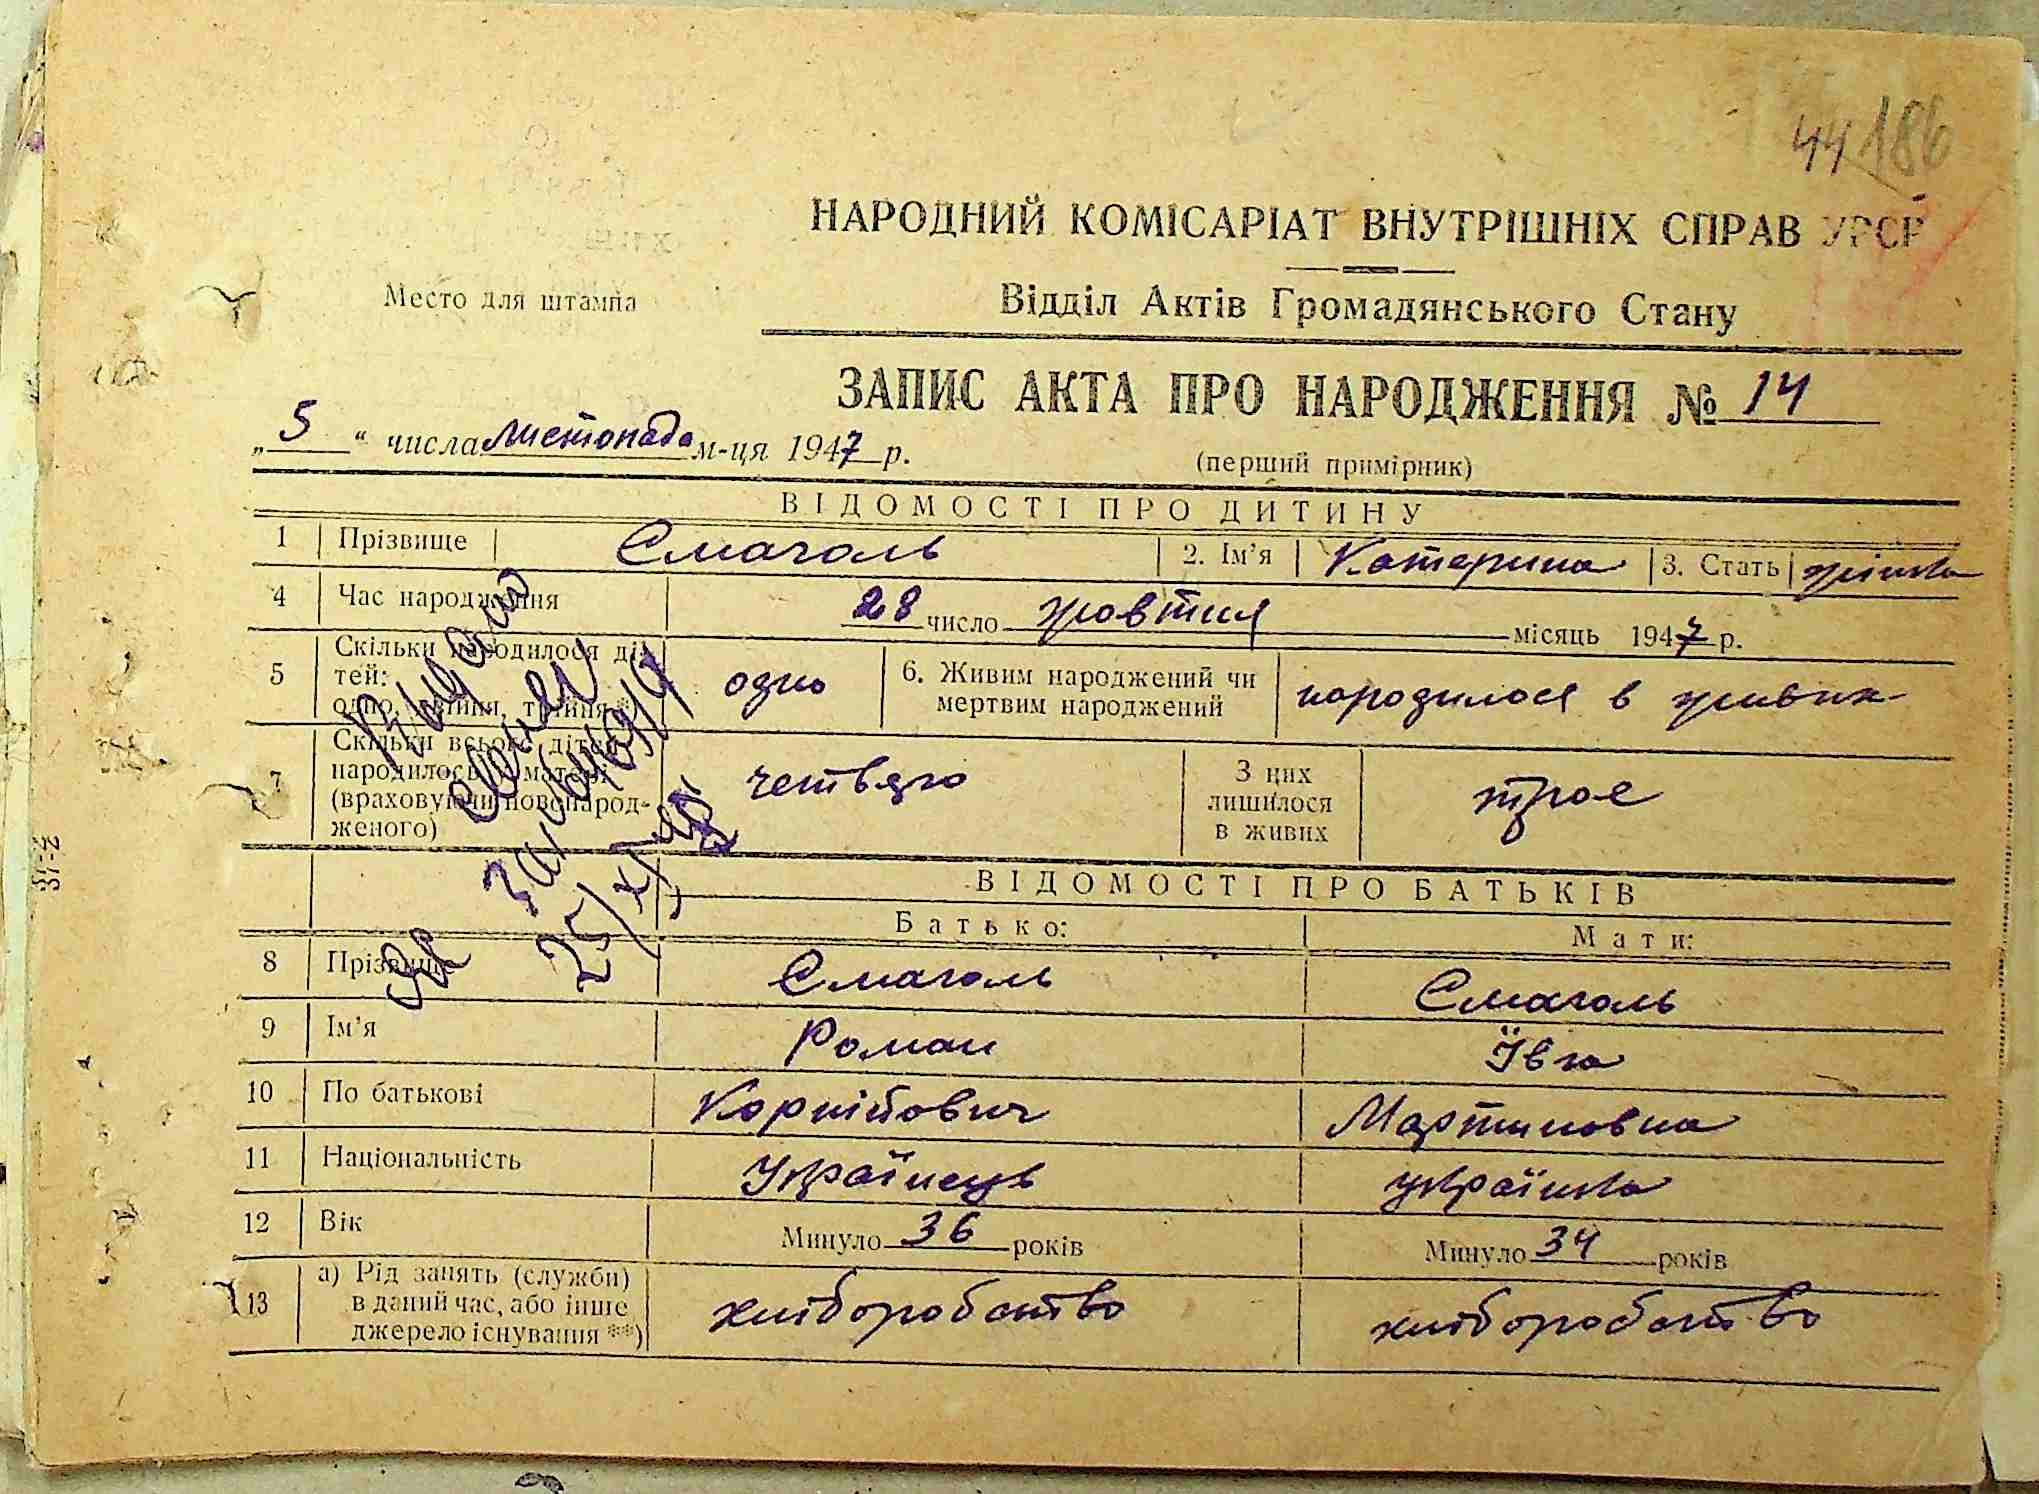 44 186
НАРОДНИЙ КОМІСАРІАТ ВНУТРІШНІХ СПРАВ УРСР
Место для штампа
Відділ Актів Громадянського Стану
ЗАПИС АКТА ПРО НАРОДЖЕННЯ № 14
„ 5 “ числа листопада м-ця 1947 р.
(перший примірник)
ВІДОМОСТІ ПРО ДИТИНУ
1 Прізвище Смаголь 2. Ім'я Катерина 3. Стать жінка
4 Час народження 28 число жовтня місяць 1947 р.
5 Скільки народилося ді-
тей:
одно, двійня, трійня *) одно 6. Живим народжений чи
мертвим народжений народилося в живих
7 Скільки всього дітей
народилось у матері
(враховуючи новонарод-
женого) четверо З цих
лишилося
в живих троє
ВІДОМОСТІ ПРО БАТЬКІВ
Батько: Мати:
8 Прізвище Смаголь Смаголь
9 Ім'я Роман Ївга
10 По батькові Корнійович Мартиновна
11 Національність Українець українка
12 Вік Минуло 36 років Минуло 34 років
13 а) Рід занять (служби)
в даний час, або інше
джерело існування **) хліборобство хліборобство